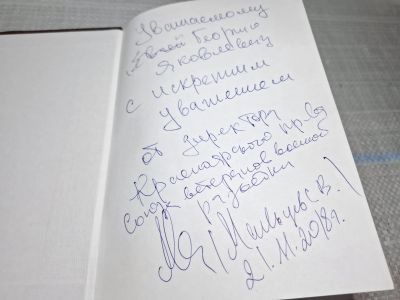 Уважаемому
Георгию
Яковлевичу
с искренним
уважением
от директора
Красноярского
Союза ветеранов военной
разведки
Мальцев С.В.
21.11.2018г.